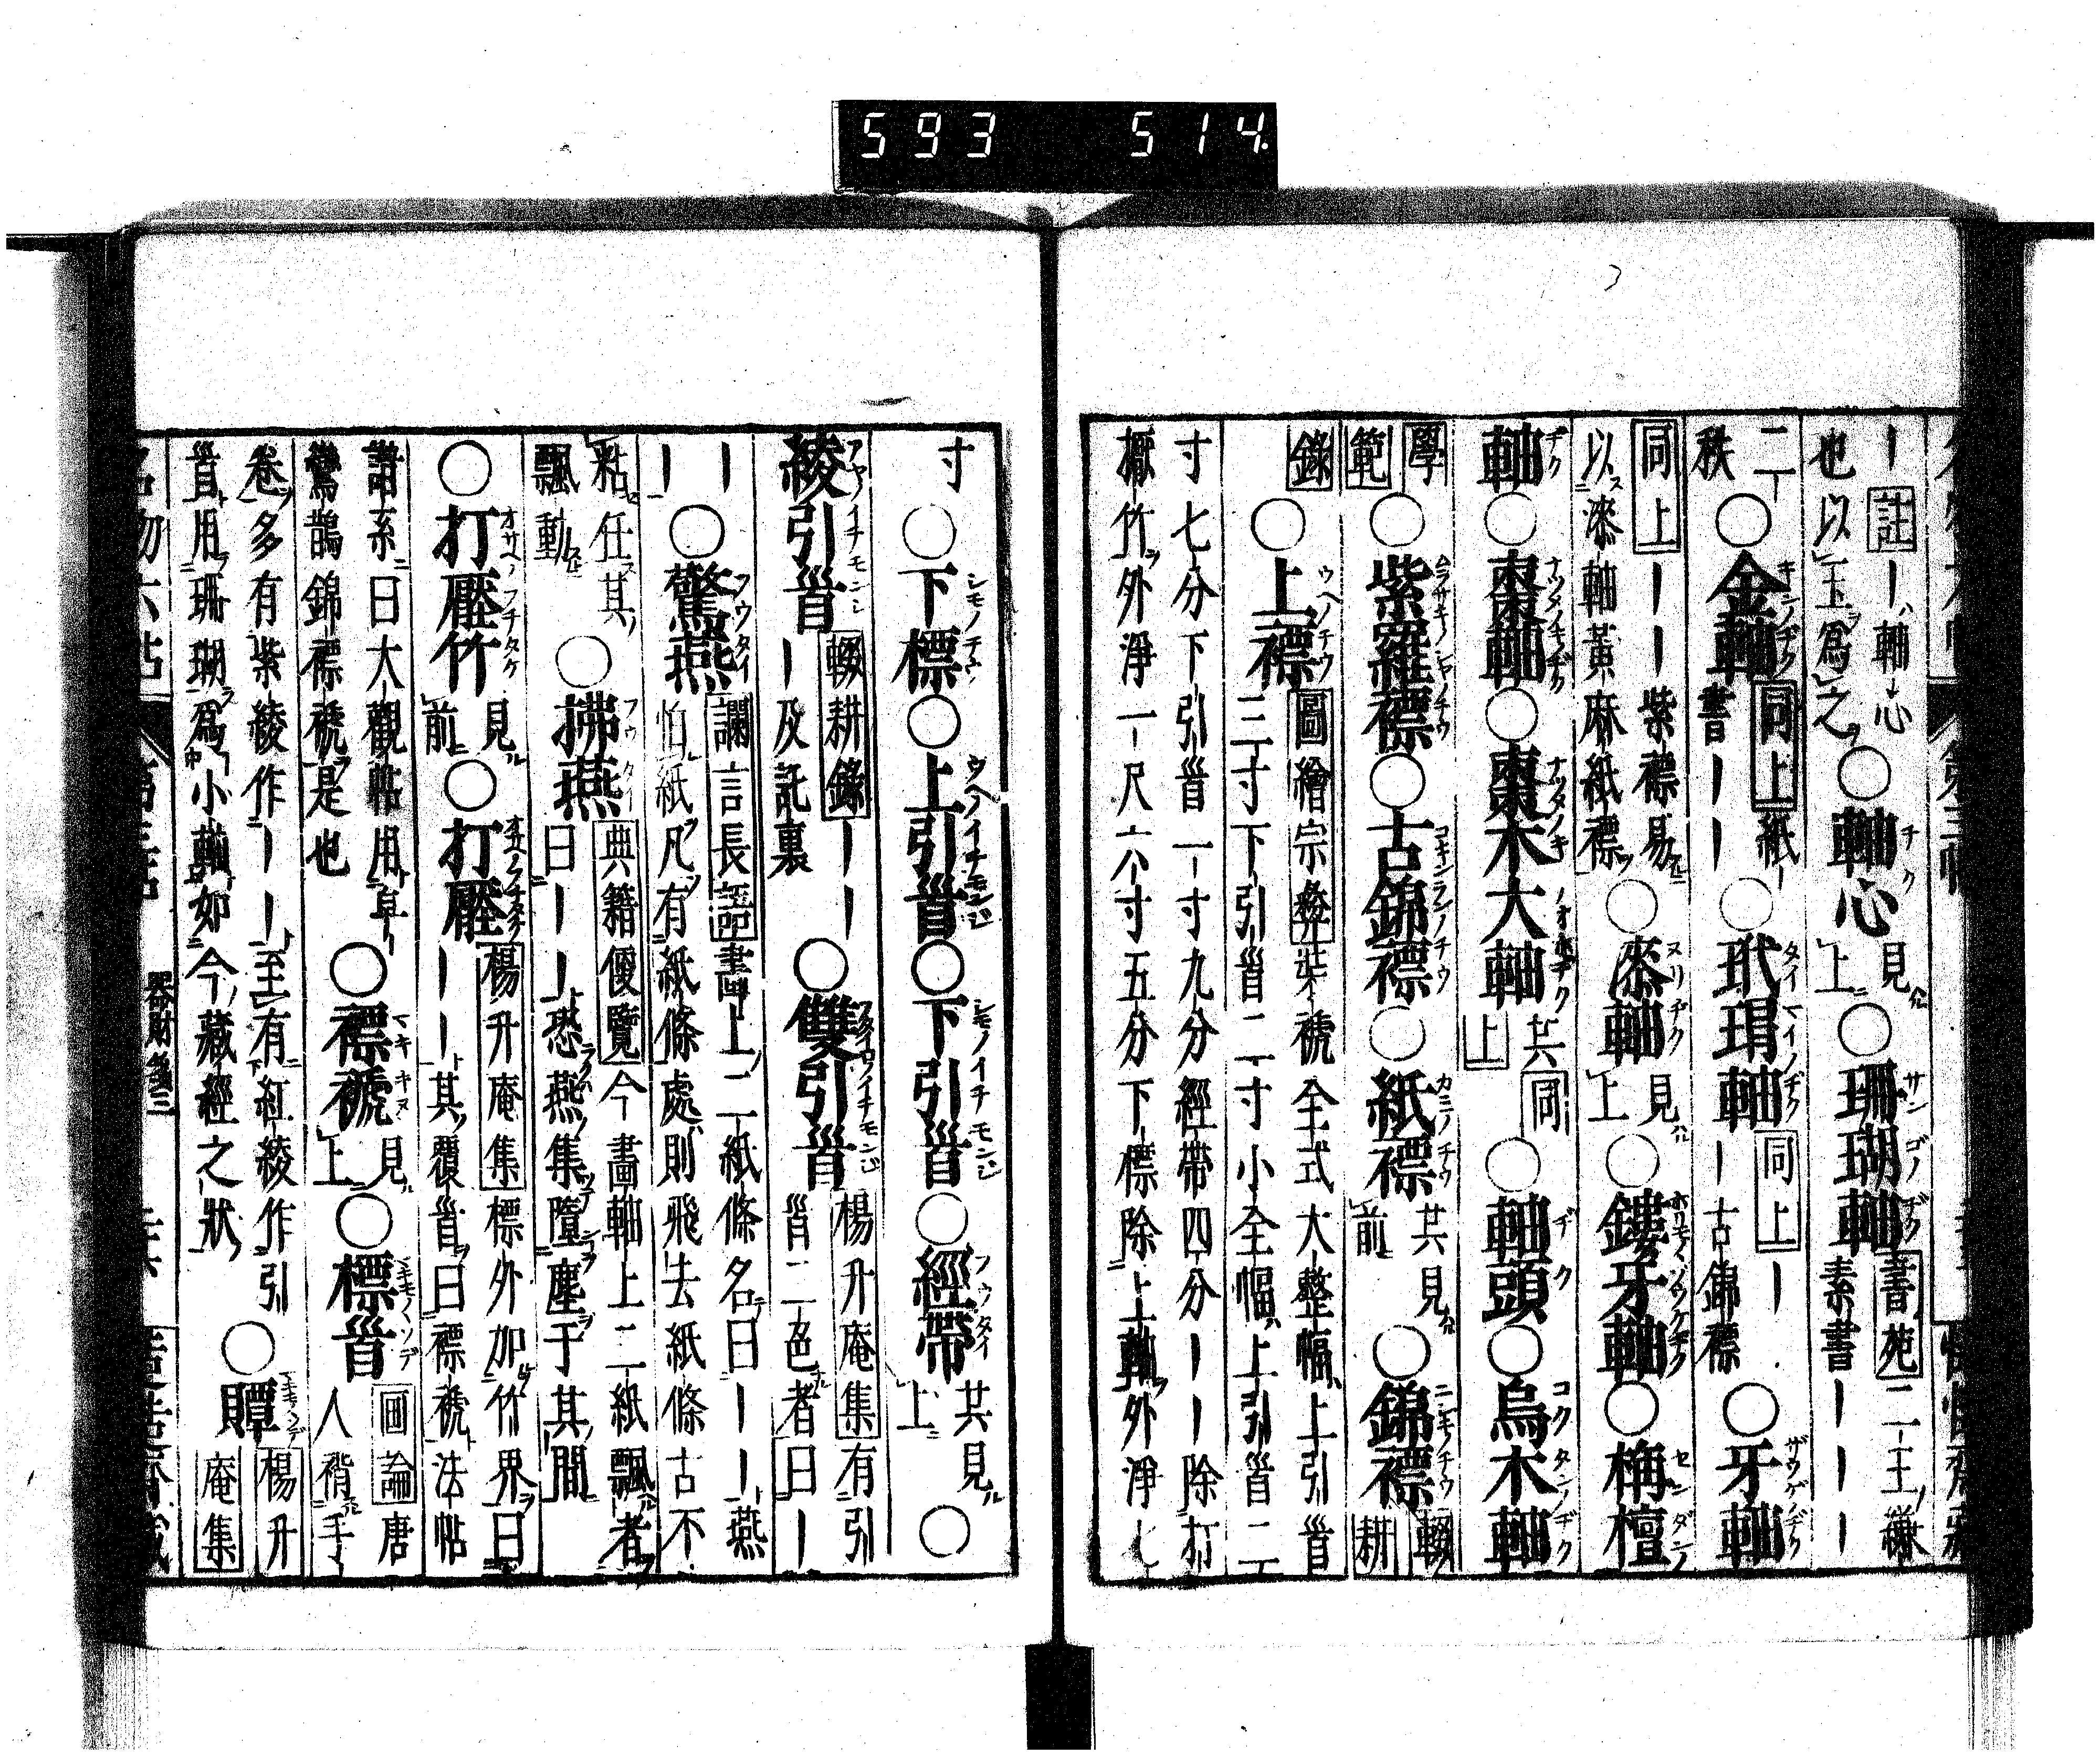 593 514.
｜註｜ハ軸心
也以玉爲之
○軸心見上○珊瑚軸書苑二王縑
素書｜｜｜
二｜
秩○金軸同上紙｜
書｜｜○玳瑁軸同上｜
｜古錦褾○牙軸
同上｜｜紫褾易
以漆軸黃麻紙褾○漆軸見上○鏤牙軸○栴檀
軸○棗軸○棗木大軸共同上○軸頭○烏木軸
學範○紫羅褾○古錦褾○紙褾共見前○錦褾輟耕
錄○上褾圖繪宗彝裝褫全式大整幅上引首
三寸下引首二寸小全幅上引首二
寸七分下引首一寸九分經帶四分｜｜除打
擫竹外淨一尺六寸五分下褾除上軸外淨七
寸○下褾○上引首○下引首○經帶共見上○
綾引首輟耕錄｜｜
｜及託裏○雙引首楊升庵集有引
首二色者曰｜
｜
｜○驚燕讕言長語畫上二紙條名曰｜｜燕
怕紙凡有紙條處則飛去紙條古不
粘任其
飄動○拂燕典籍便覽今畫軸上二紙飄者
曰｜｜恐燕集墮塵于其間
○打壓竹見前○打壓楊升庵集褾外加竹界曰
｜｜其覆首曰褾褫法帖
譜系曰大觀帖用皁
鸞鵲錦褾褫是也○褾褫見上○褾首圖論唐
人褙手
卷多有紫綾作｜｜至有紅綾作引
首用珊瑚爲小軸如今藏經之狀○贉楊升
庵集
器財